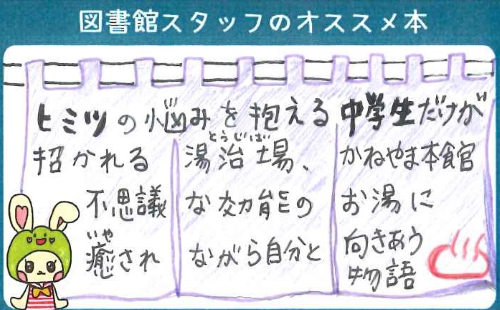 図書館スタッフのオススメ本
ヒミツの悩みを抱える中学生だけが
招かれる湯治場、かねやま本館
とうじば
不思議な効能のお湯に
癒されながら自分と向きあう
いや
物語